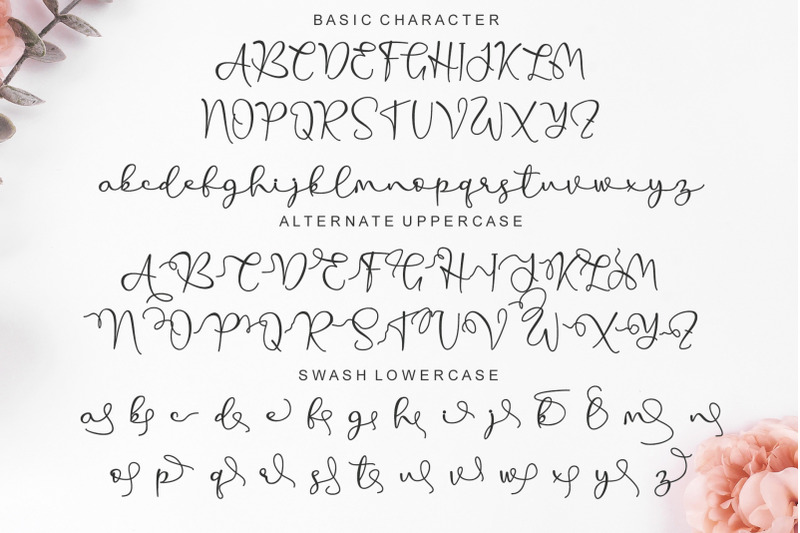 BASIC CHARACTER
ABCDEFGHIJKLM
NOPQRSTUVWXYZ
abcdefghijklmnopqrstuvwxyz
ALTERNATE UPPERCASE
ABCDEFGHIJKLM
NOPQRSTUVWXYZ
SWASH LOWERCASE
a b c d e f g h i j k l m n
o p q r s t u v w x y z